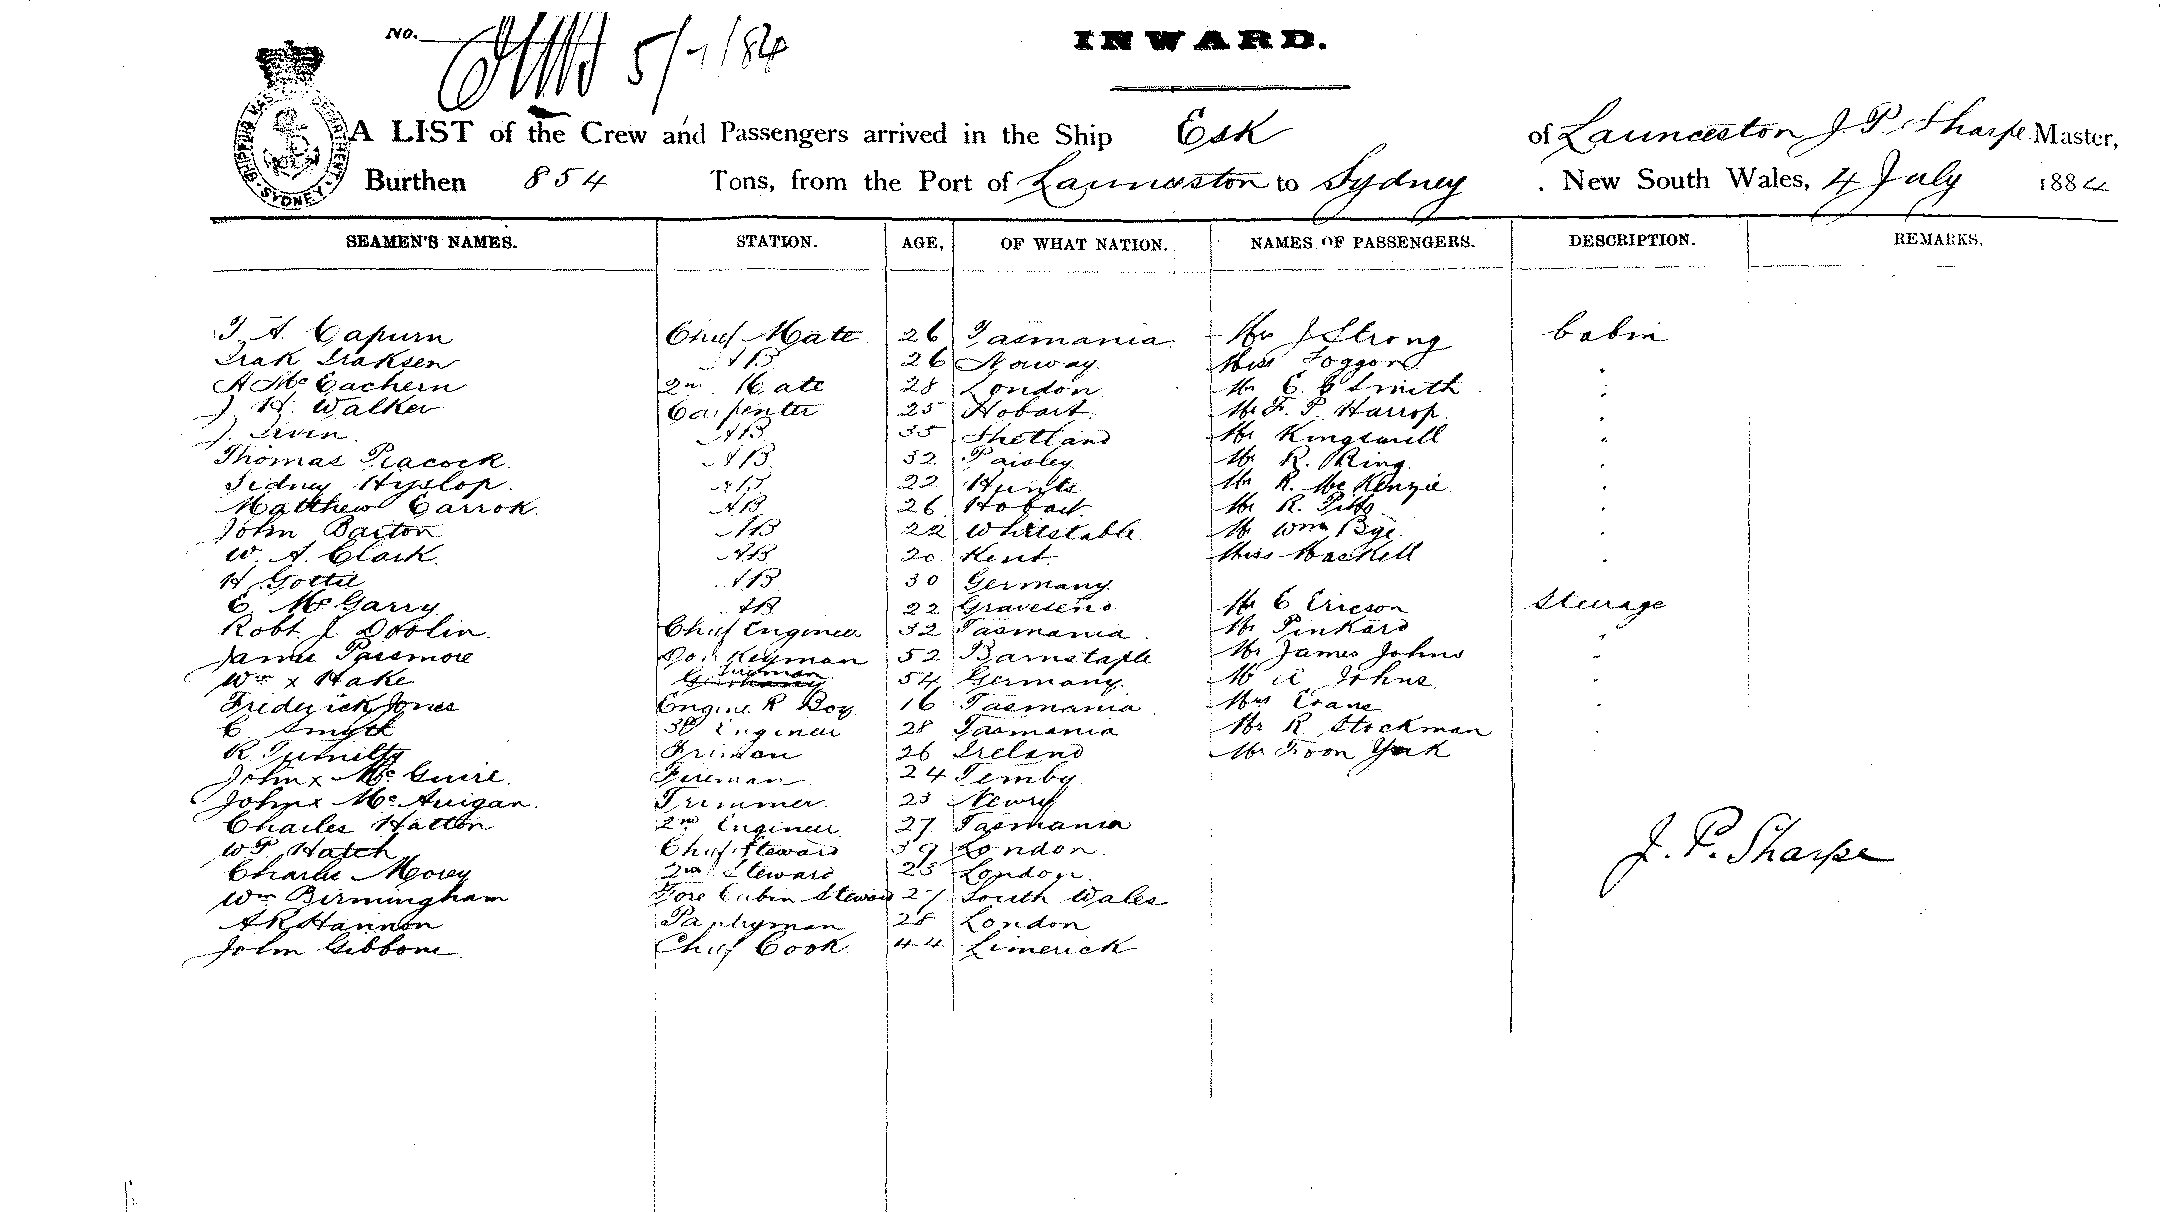 No. 5/7/84
INWARD.
SHIPPING MASTER'S DEPARTMENT. SYDNEY
A LIST of the Crew and Passengers arrived in the Ship Esk of Launceston J P Sharpe Master,
Burthen 854 Tons, from the Port of Launceston to Sydney. New South Wales, 4 July 1884
SEAMEN'S NAMES. STATION. AGE, OF WHAT NATION. NAMES OF PASSENGERS. DESCRIPTION. REMARKS.
T. A. Capurn Chief Mate 26 Tasmania Mr J Strong Cabin
Isak Isaksen AB 26 Noway Miss Foggon "
A McEachern 2nd Mate 28 London Mr E B Smith "
J. H. Walker Carpenter 25 Hobart Mr F. P. Harrop "
J. Irvin AB 35 Shetland Mr Kingsmill "
Thomas Peacock AB 32 Paisley Mr R. Ring "
Sidney Hyslop AB 22 Hunts Mr R. McKenzie "
Matthew Carrok AB 26 Hobart Mr R. Pitts "
John Barton AB 22 Whitstable Mr Wm Bye "
W. A. Clark AB 20 Kent Miss Mackell "
H Gottil AB 30 Germany
C. McGarry AB 22 Gravesend Mr C Ericson Steerage
Robt J. Doolin Chief Engineer 32 Tasmania Mr Pinkard "
James Passmore Donkeyman 52 Barnstaple Mr James Johns "
Wm x Hake Fireman 54 Germany Mr A Johns "
Frederick Jones Engine R Boy 16 Tasmania Mrs Evans "
C. Smyth 3rd Engineer 28 Tasmania Mr R Stockman "
R. Tumilty Fireman 26 Ireland Mr Foon York "
John x McGuire Fireman 24 Temby
John x McAvigan Trimmer 23 Newry
Charles Hatton 2nd Engineer 27 Tasmania
W P Hatch Chief Steward 39 London
Charlie Morey 2nd Steward 25 London J. P. Sharpe
Wm Birmingham Fore Cabin Steward 27 South Wales
A R Hannon Pantryman 28 London
John Gibbons Chief Cook 44 Limerick